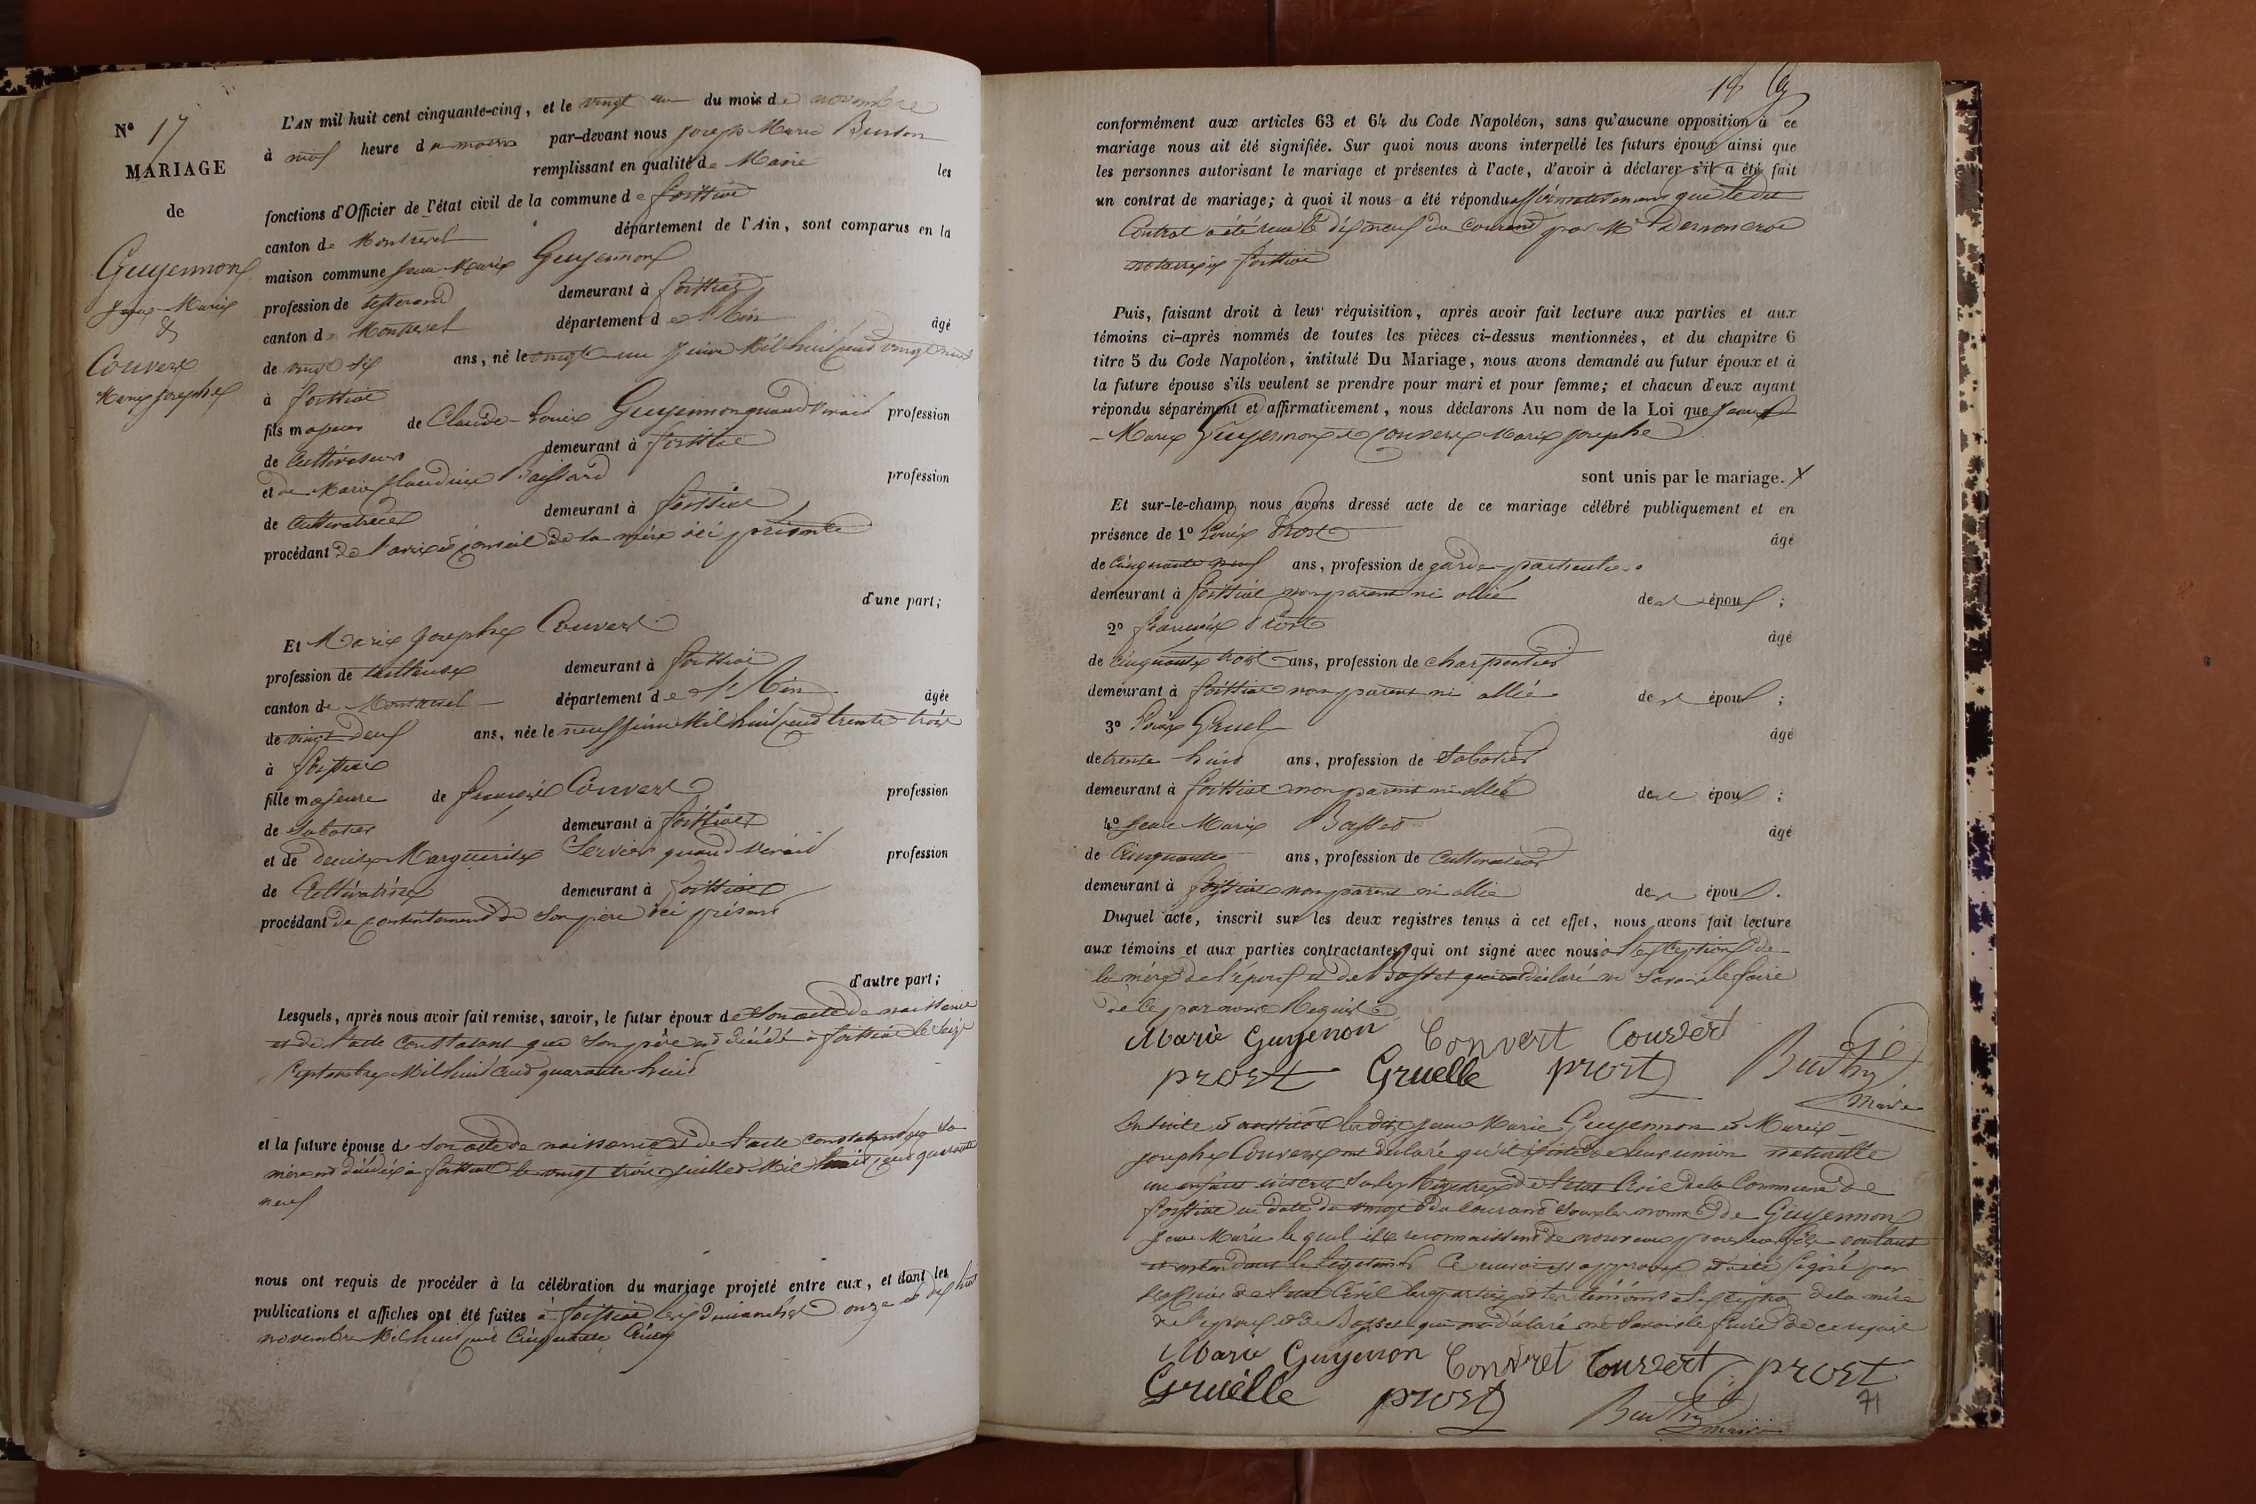 N° 17
MARIAGE
de
Guyennon
Jean-Marie
&
Convert
Marie Josephe
L'AN mil huit cent cinquante-cinq, et le vingt un du mois de novembre
à neuf heure du matin par-devant nous Joseph Marie
remplissant en qualité de Maire les
fonctions d'Officier de l'état civil de la commune de foissiat
canton de Montrevel département de l'Ain, sont comparus en la
maison commune Jean Marie Guyennon
profession de tisserand demeurant à foissiat
canton de Montrevel département de l'Ain âgé
de vingt six ans, né le vingt un juin Mil huit cent vingt neuf
à foissiat
fils majeur de Claude-Louis Guyennon quand vivait profession
de cultivateur demeurant à foissiat
et de Marie Claudine profession
de cultivatrice demeurant à foissiat
procédant de l'avis et conseil de la mère ici présente
d'une part;
Et Marie Josephe Convert
profession de tailleuse demeurant à foissiat
canton de Montrevel département de l'Ain âgée
de vingt deux ans, née le neuf juin Mil huit cent trente trois
à foissiat
fille majeure de françois Convert profession
de Sabotier demeurant à foissiat
et de Denise Marguerite quand vivait profession
de Cultivatrice demeurant à foissiat
procédant de consentement de son père ici présent
d'autre part;
Lesquels, après nous avoir fait remise, savoir, le futur époux de son acte de naissance
et de l'acte constatant que son père est décédé à foissiat le seize
Septembre Mil huit cent quarante huit
et la future épouse de son acte de naissance et de l'acte constatant que sa
mère est décédée à foissiat le vingt trois juillet Mil huit cent quarante
neuf
nous ont requis de procéder à la célébration du mariage projeté entre eux, et dont les
publications et affiches ont été faites à foissiat les dimanches onze et dix huit
novembre Mil huit cent Cinquante Cinq
18
conformément aux articles 63 et 64 du Code Napoléon, sans qu'aucune opposition à ce
mariage nous ait été signifiée. Sur quoi nous avons interpellé les futurs époux ainsi que
les personnes autorisant le mariage et présentes à l'acte, d'avoir à déclarer s'il a été fait
un contrat de mariage; à quoi il nous a été répondu affirmativement que le dit
Contrat a été reçu le dix neuf du courant par Me
notaire à foissiat
Puis, faisant droit à leur réquisition, après avoir fait lecture aux parties et aux
témoins ci-après nommés de toutes les pièces ci-dessus mentionnées, et du chapitre 6
titre 5 du Code Napoléon, intitulé Du Mariage, nous avons demandé au futur époux et à
la future épouse s'ils veulent se prendre pour mari et pour femme; et chacun d'eux ayant
répondu séparément et affirmativement, nous déclarons Au nom de la Loi que Jean
-Marie Guyennon et Convert Marie Josephe
sont unis par le mariage.
Et sur-le-champ, nous avons dressé acte de ce mariage célébré publiquement et en
présence de 1° Louis Prost âgé
de Cinquante neuf ans, profession de garde particulier
demeurant à foissiat non parent ni allié des époux;
2° françois Prost âgé
de cinquante trois ans, profession de charpentier
demeurant à foissiat non parent ni allié des époux;
3° Louis Gruel âgé
de trente huit ans, profession de Sabotier
demeurant à foissiat non parent ni allié des époux;
4° Jean Marie Basset âgé
de Cinquante ans, profession de Cultivateur
demeurant à foissiat non parent ni allié des époux.
Duquel acte, inscrit sur les deux registres tenus à cet effet, nous avons fait lecture
aux témoins et aux parties contractantes, qui ont signé avec nous à l'exception de
la mère de l'époux et de Basset qui ont déclaré ne savoir le faire
de ce par nous Requis
Marie Guyenon Convert Convert
prost Gruelle prost
Maire
Ensuite et aussitôt lesdits Jean Marie Guyennon et Marie
Josephe Convert ont déclaré qu'il existe de leur union naturelle
un enfant inscrit sur les Registres de l'état Civil de la Commune de
foissiat en date du vingt du courant sous les noms de Guyennon
Jean Marie le quel ils reconnaissent de nouveau pour leur fils voulant
et entendant le légitimer Ce renvoi est approuvé et a été signé par
l'officier de l'état Civil les parties et les témoins à l'exception de la mère
de l'époux et de Basset qui ont déclaré ne savoir le faire de ce requis
Marie Guyenon Convret Convert prost
Gruelle prost
maire
71